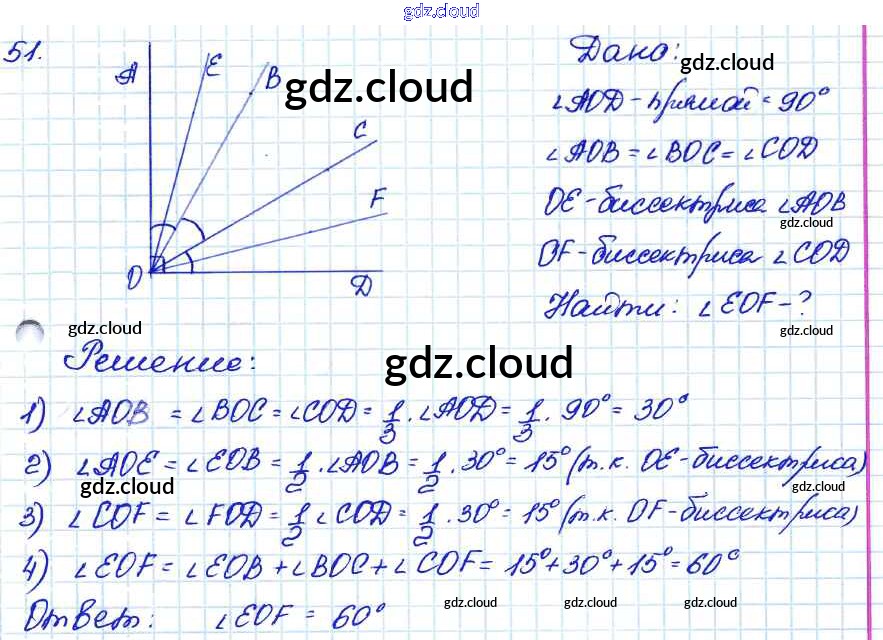 gdz.cloud
51.
A E B C F D O
gdz.cloud
Дано:
gdz.cloud
∠AOD - прямой = 90°
∠AOB = ∠BOC = ∠COD
OE - биссектриса ∠AOB
gdz.cloud
OF - биссектриса ∠COD
Найти: ∠EOF - ?
gdz.cloud
gdz.cloud
Решение:
gdz.cloud
1) ∠AOB = ∠BOC = ∠COD = 1/3 · ∠AOD = 1/3 · 90° = 30°
2) ∠AOE = ∠EOB = 1/2 · ∠AOB = 1/2 · 30° = 15° (т.к. OE - биссектриса)
gdz.cloud
gdz.cloud
3) ∠COF = ∠FOD = 1/2 ∠COD = 1/2 · 30° = 15° (т.к. OF - биссектриса)
4) ∠EOF = ∠EOB + ∠BOC + ∠COF = 15° + 30° + 15° = 60°
Ответ: ∠EOF = 60°
gdz.cloud gdz.cloud gdz.cloud